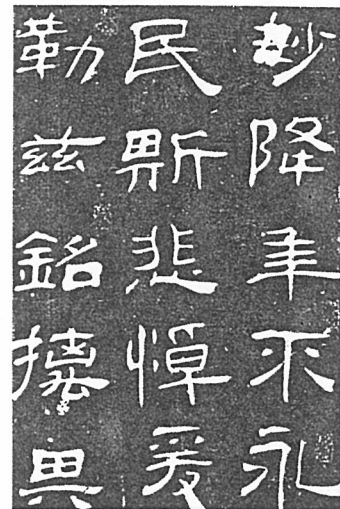 降年不永
民斯悲悼爰
勒茲銘